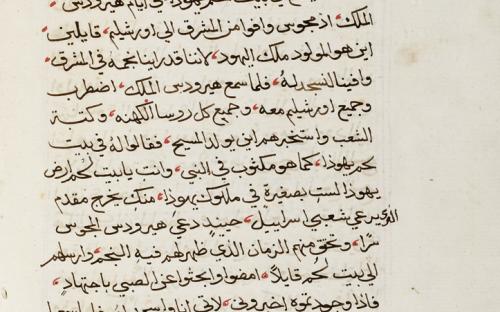 الملك، اذ مجوس وافوا من المشرق الى اورشليم، قايلين
اين هو المولود ملك اليهود، لاننا قد راينا نجمه في المشرق،
وافينا لنسجد له، فلما سمع هيرودس الملك، اضطرب
وجميع اورشليم معه، وجميع كل روسا الكهنه، وكتبة
الشعب واستخبرهم اين يولد المسيح، فقالوا له في بيت
لحم يهوذا، كما هو مكتوب في النبي، وانت يا بيت لحم ارض
يهوذا لست بصغيرة في ملوك يهوذا، منك يخرج مقدم
الذي يرعي شعبي اسراييل، حينيذ دعي هيرودس المجوس
سرًا، وتحقق منهم الزمان الذي ظهر لهم فيه النجم، وارسلهم
الي بيت لحم قايلا، امضوا وابحثوا عن الصبي باجتهاد،
فاذا وجدتموه اخبروني، لاتي انا